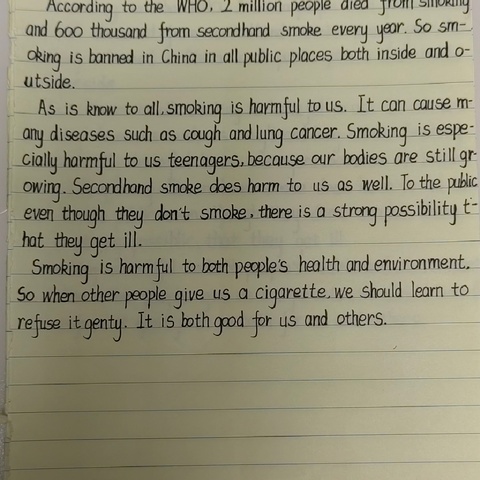 According to the WHO, 2 million people died from smoking
and 600 thousand from secondhand smoke every year. So sm-
oking is banned in China in all public places both inside and o-
utside.
As is know to all, smoking is harmful to us. It can cause m-
any diseases such as cough and lung cancer. Smoking is espe-
cially harmful to us teenagers, because our bodies are still gr-
owing. Secondhand smoke does harm to us as well. To the public
even though they don't smoke, there is a strong possibility t-
hat they get ill.
Smoking is harmful to both people's health and environment.
So when other people give us a cigarette, we should learn to
refuse it genty. It is both good for us and others.